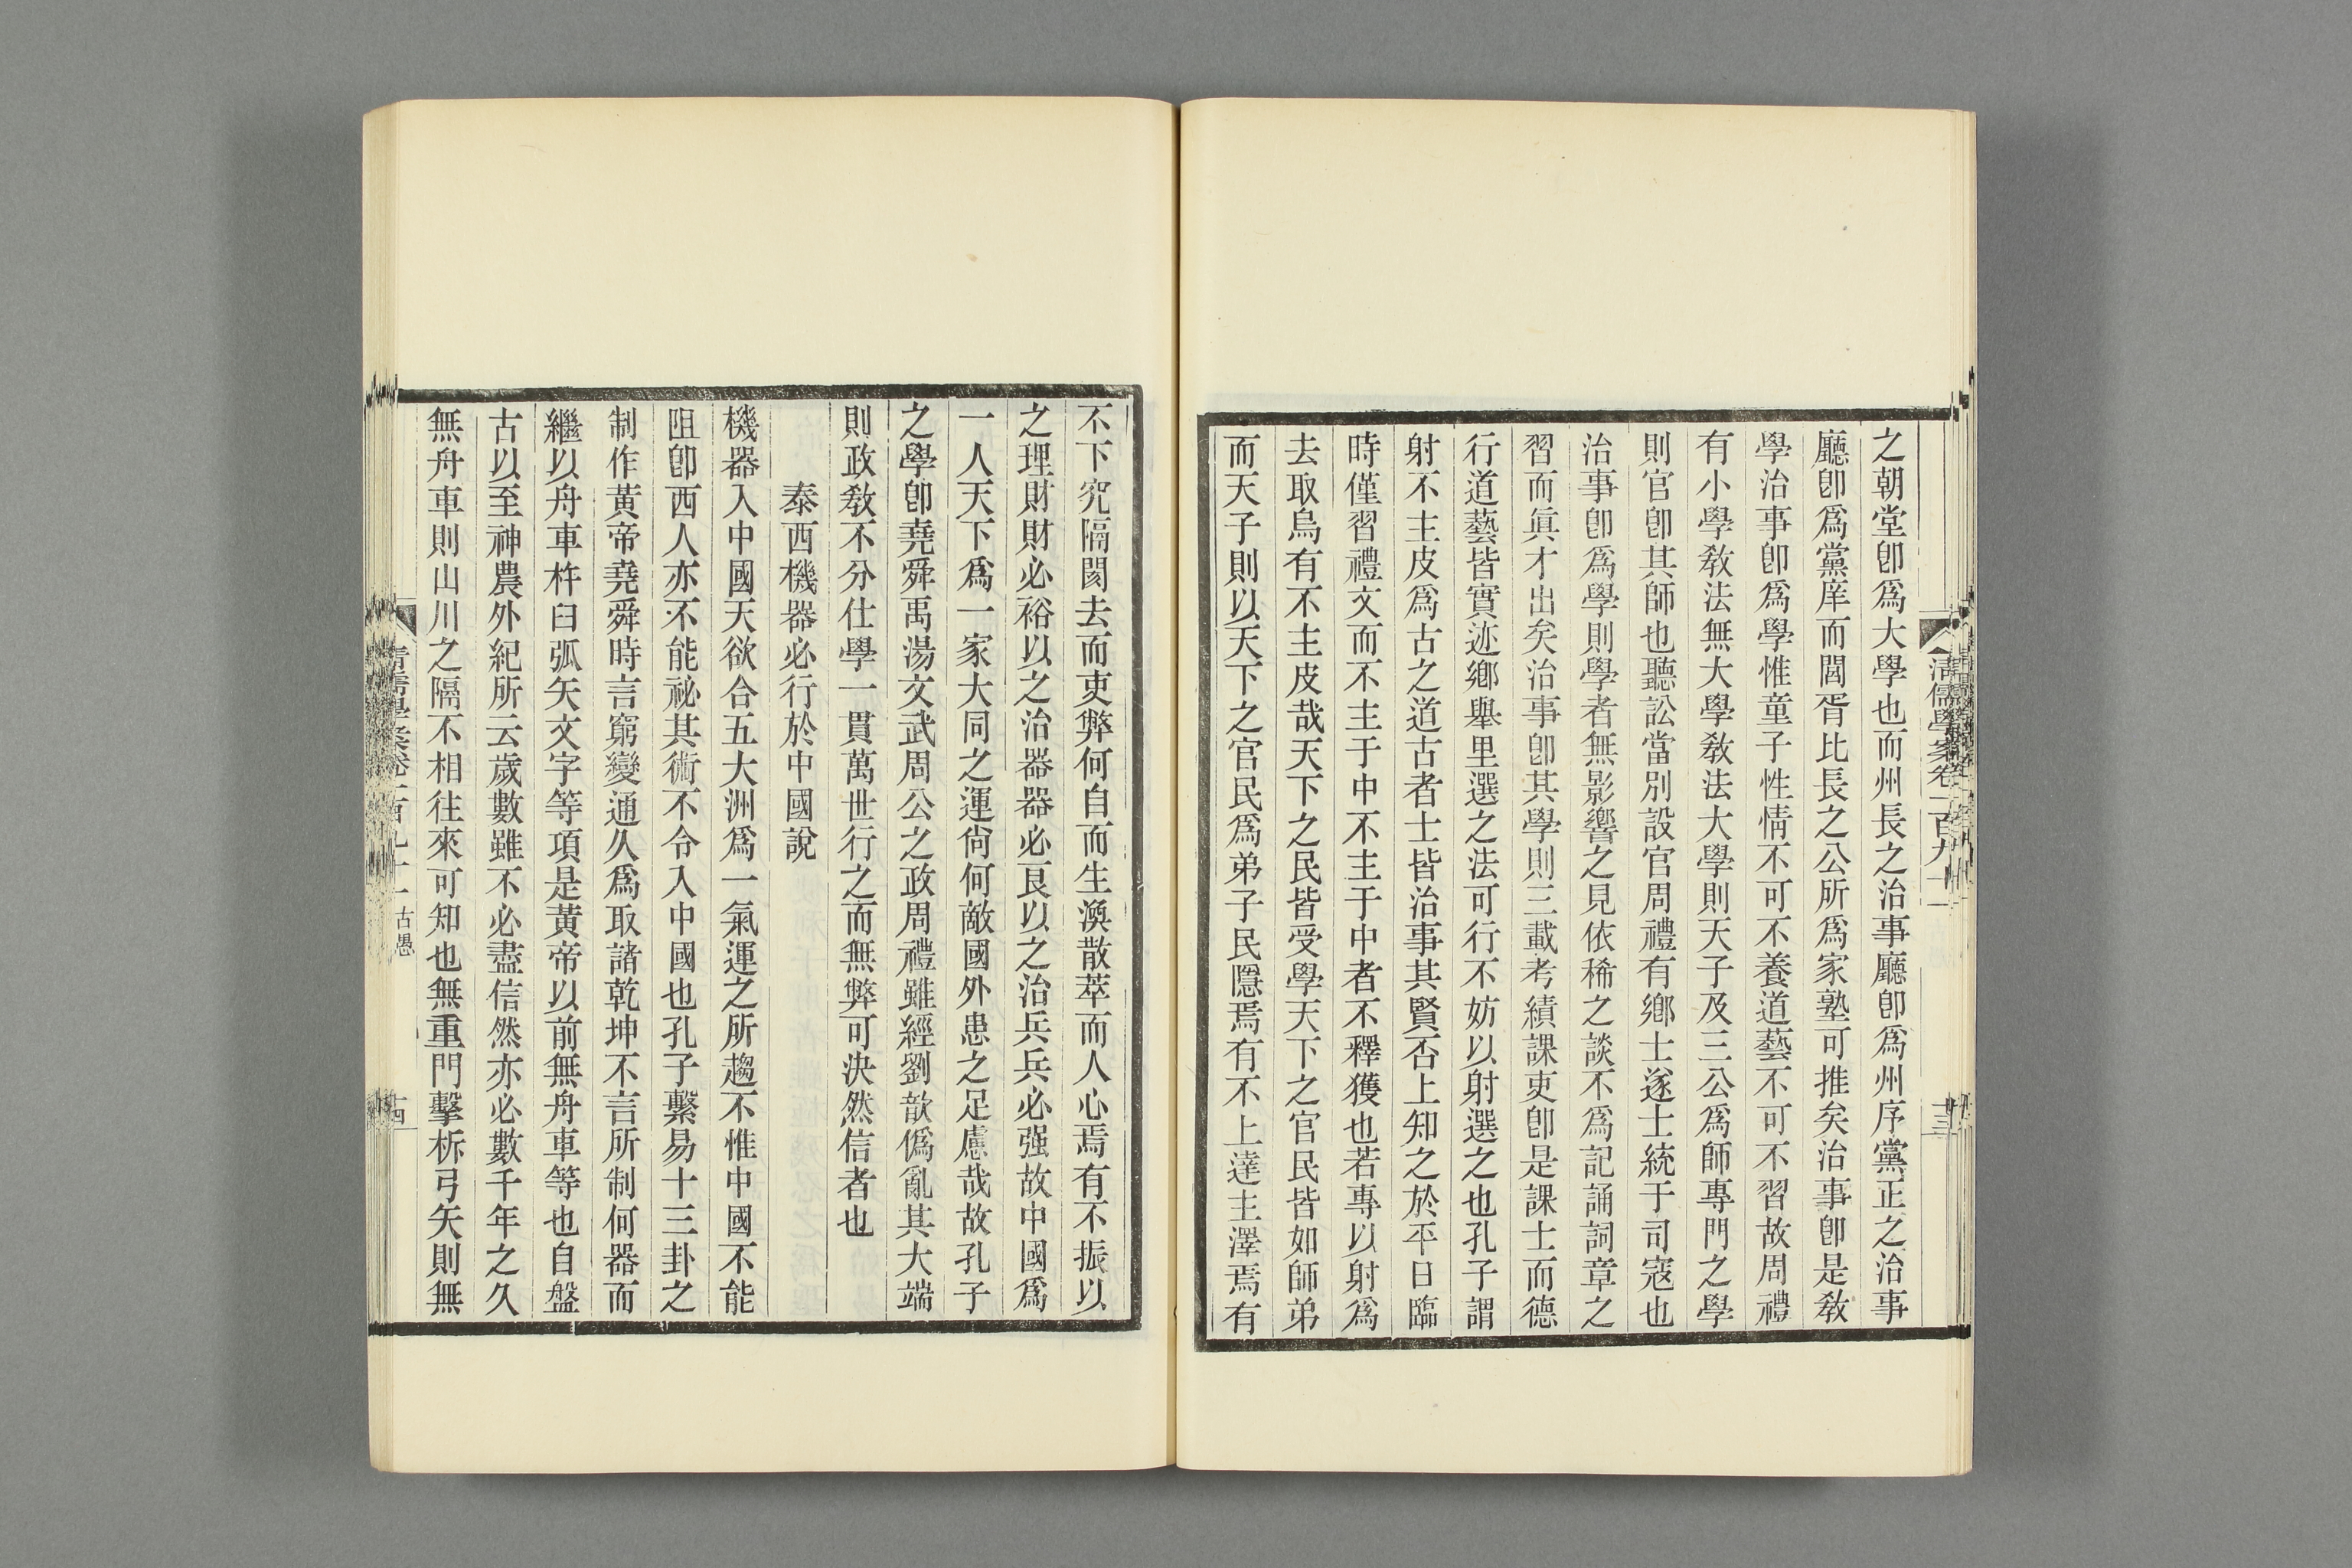 之朝堂卽爲大學也而州長之治事廳卽爲州序黨正之治事
廳卽爲黨庠而閭胥比長之公所爲家塾可推矣治事卽是敎
學治事卽爲學惟童子性情不可不養道藝不可不習故周禮
有小學敎法無大學敎法大學則天子及三公爲師專門之學
則官卽其師也聽訟當別設官周禮有鄉士遂士統于司寇也
治事卽爲學則學者無影響之見依稀之談不爲記誦詞章之
習而眞才出矣治事卽其學則三載考績課吏卽是課士而德
行道藝皆實迹鄉舉里選之法可行不妨以射選之也孔子謂
射不主皮爲古之道古者士皆治事其賢否上知之於平日臨
時僅習禮文而不主于中不主于中者不釋獲也若專以射爲
去取烏有不主皮哉天下之民皆受學天下之官民皆如師弟
而天子則以天下之官民爲弟子民隱焉有不上達主澤焉有
清儒學案卷一百九十一
十三
不下究隔閡去而吏弊何自而生渙散萃而人心焉有不振以
之理財財必裕以之治器器必良以之治兵兵必强故中國爲
一人天下爲一家大同之運尙何敵國外患之足慮哉故孔子
之學卽堯舜禹湯文武周公之政周禮雖經劉歆僞亂其大端
則政敎不分仕學一貫萬世行之而無弊可決然信者也
泰西機器必行於中國說
機器入中國天欲合五大洲爲一氣運之所趨不惟中國不能
阻卽西人亦不能祕其術不令入中國也孔子繫易十三卦之
制作黃帝堯舜時言窮變通久爲取諸乾坤不言所制何器而
繼以舟車杵臼弧矢文字等項是黃帝以前無舟車等也自盤
古以至神農外紀所云歲數雖不必盡信然亦必數千年之久
無舟車則山川之隔不相往來可知也無重門擊柝弓矢則無
古愚
十四